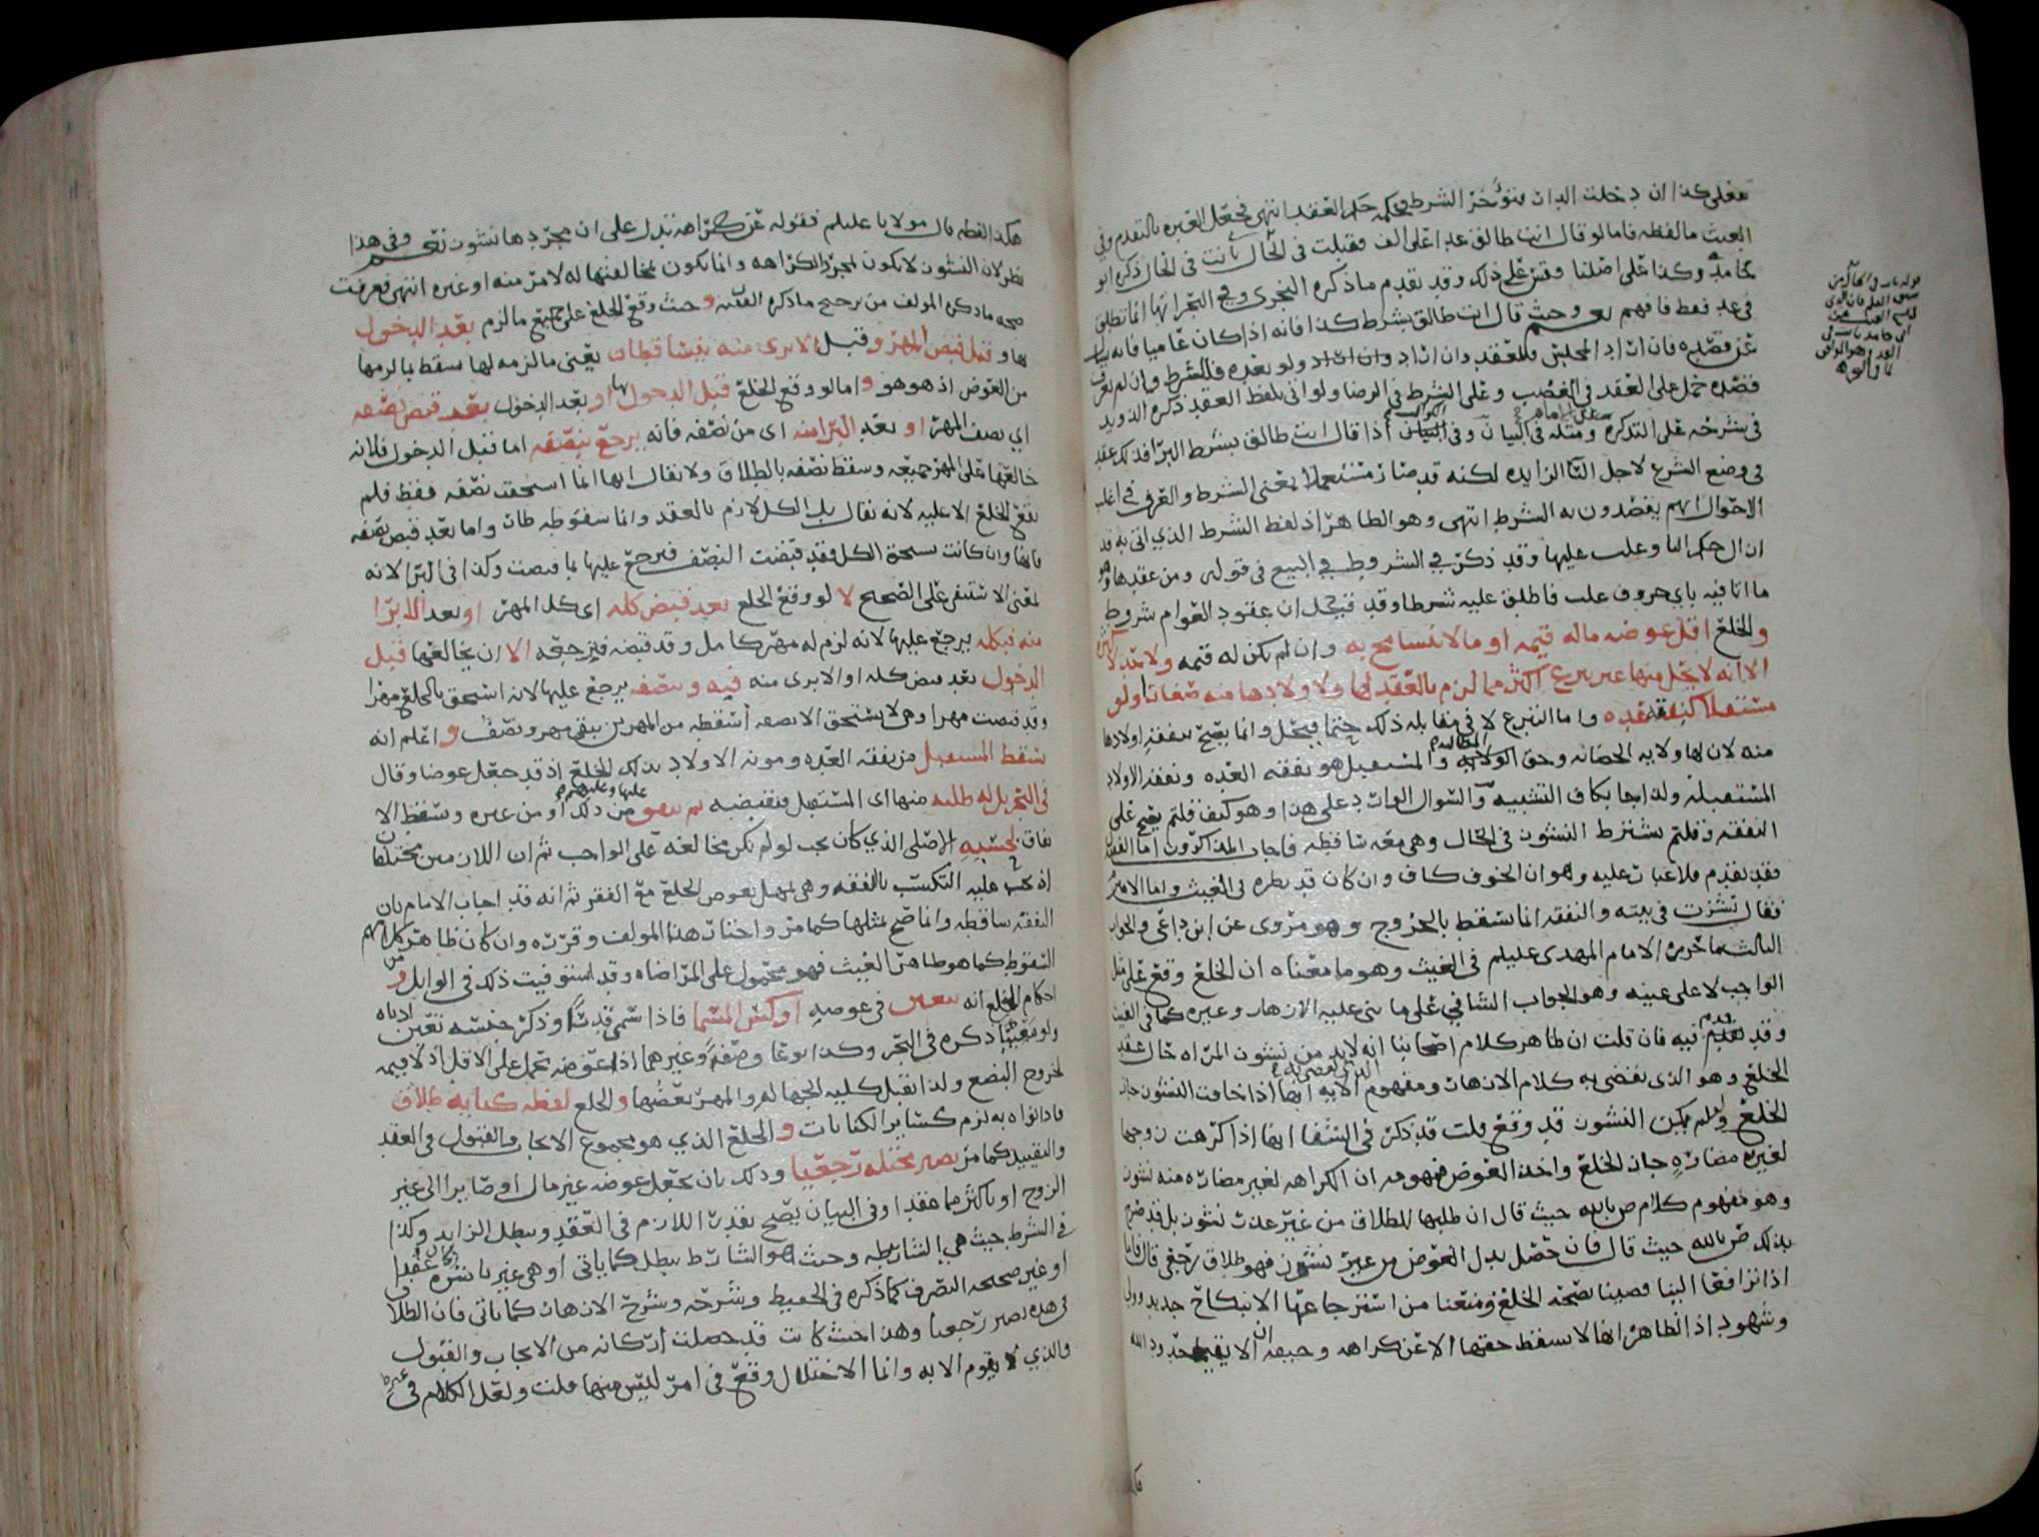 فعلى كذا ان دخلت الدار فتؤخر الشرط فحكمه حكم العقد انتهى فجعل العبره بالتقدم وفي
الغيث ما لفظه فاما لو قال انت طالق غدا على الف فقبلت في الحال بانت في الحال ذكره ابو
حامد وكذا على اصلنا وقس على ذلك وقد تقدم ما ذكره النجري وفي البحر انها انما تطلق
في غد فقط فافهم وحيث قال انت طالق بشرط كذا فانه اذا كان عاميا فانه يسأل
عن قصده فان اراد المجلس فللعقد وان اراد ولو بعده فللشرط وان لم يعرف
قصده حمل على العقد في الغضب وعلى الشرط في الرضا ولو اتى بلفظ العقد ذكره الدويد
في شرحه على التذكره ومثله في البيان وفي اذا قال انت طالق بشرط البرا فذلك عقد
في وضع الشرع لاجل البا الزايده لكنه قد صار مستعملا بمعنى الشرط والعرف في اغلب
الاحوال انهم يقصدون به الشرط انتهى وهو الظاهر اذ لفظ الشرط الذي اتى به قد
ازال حكم البا وغلب عليها وقد ذكر في الشروط في البيع في قوله ومن عقدها وهو
ما اتا فيه باي حروف علب فاطلق عليه شرطا وقد قيل ان عقود العوام شروط
والخلع اقل عوضه ماله قيمه او ما لا يتسامح به وان لم يكن له قيمه ولا حد لاكثره
الا انه لا يحل منها غير تبرع اكثر مما لزم بالعقد لها ولاولادها منه صغارا ولو
مستقبلا كنفقه عده واما التبرع لا في مقابله ذلك حتما فيحل وانما يصح بنفقه اولادها
منه لان لها ولايه الحضانه وحق المطالبه والمستقبل هو نفقه العده ونفقه الاولاد
المستقبله ولذا جا بكاف التشبيه والسوال الوارد على هذا وهو كيف قلتم يصح على
النفقه وقلتم يشترط النشوز في الحال وهي معه ساقطه فاجاب المذاكرون اما الفقيه
فقد تقدم فلا غبار عليه وهو ان الخوف كاف وان كان قد نظره في الغيث واما الامير
فقال نشزت في بيته والنفقه انما تسقط بالخروج وهو مروى عن ابن داعي والجواب
الثالث ما حرره الامام المهدي عليلم في الغيث وهو ما معناه ان الخلع وقع على مثل
الواجب لا على عينه وهو الجواب الشافي على ما بني عليه الازهار وغيره كما في الغيث
وقد تقدم فيه فان قلت ان ظاهر كلام اصحابنا انه لا بد من نشوز المراه حال عقد
الخلع وهو الذي يقضي به كلام الازهار ومفهوم الايه انها اذا خافت النشوز جاز
الخلع ولم يكن النشوز قد وقع قلت قد ذكر في الشفا انها اذا كرهت زوجها
لغير مضاره جاز الخلع واخذ العوض فمفهومه ان الكراهه لغير مضاره منه نشوز
وهو مفهوم كلام ص بالله حيث قال ان طلبها للطلاق من غير عذر نشوز بل قد صرح
بذلك ص بالله حيث قال فان حصل بدل العوض من غير نشوز فهو طلاق رجعي قال فانا
اذا ترافعا الينا قضينا بصحه الخلع ومنعنا من استرجاعها الا بنكاح جديد وولي
وشهود اذ الظاهر انها لا تسقط حقها الا عن كراهه وخيفه ان الا يقيما حدود الله
قوله بانت في الحال
هكذا لفظه قال مولانا عليلم فقوله عن كراهه تدل على ان مجردها نشوز نعم وفي هذا
نظر لان النشوز لا يكون لمجرد الكراهه وانما يكون لمخالفتها له لامر منه او غيره انتهى فعرفت
صحه ما ذكره المولف من ترجيح ما ذكره الفقيه وحيث وقع الخلع على جميع ما لزم بعد الدخول
بها و قبل قبض المهر وقبل الابرى منه يتساقطان يعني ما لزمه لها سقط بما لزمها
من العوض اذ هو هو واما لو وقع الخلع قبل الدخول بها او بعد الدخول بعد قبض نصفه
اي نصف المهر او بعد البرا منه اي من نصفه فانه يرجع بنصفه اما قبل الدخول فلانه
خالعها على المهر جميعه وسقط نصفه بالطلاق ولا يقال انها انما استحقت نصفه فقط فلم
يقع الخلع الا عليه لانه نقال بل الكل لازم بالعقد وانما سقوطه طار واما بعد قبض نصفه
فانها وان كانت تستحق الكل فقد قبضت النصف فيرجع عليها بما قبضت وكذا في البرا لانه
لمعنى الاستيفى على الصحيح لا لو وقع الخلع بعد قبض كله اي كل المهر او بعد الابرا
منه فبكله يرجع عليها لانه لزم له مهر كامل وقد قبضه فيرجعه الا ان يخالعها قبل
الدخول بعد قبض كله او الابرى منه فبه وبنصفه يرجع عليها لانه استحق بالخلع مهرا
وقد قبضت مهرا وهي لا تستحق الا نصفه اسقطه من المهرين يبقى مهر ونصف واعلم انه
يسقط المستقبل من نفقه العده ومونه الاولاد بذلك الخلع اذ قد جعل عوضا وقال
في البحر بل له طلبه منها اي المستقبل فيقبضه ثم ينفق من ذلك او من غيره وتسقط الا
نفاق بحسبه الاصلي الذي كان يجب لو لم تكن مخالعه على الواجب ثم ان اللازمين مختلفان
اذ يجب عليه التكسب بالنفقه وهي تمهل بعوض الخلع مع الفقر ثم انه قد اجاب الامام بان
النفقه ساقطه وانما صح بمثلها كما مر واختار هذا المولف وقرره وان كان ظاهر كلامهم
السقوط كما هو ظاهر الغيث فهو محمول على المراضاه وقد استوفيت ذلك في الوابل و من
احكام الخلع انه يتعين في عوضه اوكس المسما فاذا سمى قدرا وذكر جنسه تعين ادناه
ولو معيبا ذكره في البحر وكذا نوعا وصفه وغيرهما اذا عوضه يحمل على الاقل اذ لا قيمه
لخروج البضع ولذا تقبل كليه الجهاله والمهر بعضها والخلع لفظه كنايه طلاق
فاذا نواه به لزم كساير الكنايات و الخلع الذي هو مجموع الايجاب والقبول في العقد
والتقييد كما مر يصير مختله رجعيا وذلك بان يجعل عوضه غير مال او صايرا الى غير
الزوج او باكثر مما عقدا وفي البيان يصح بقدر اللازم في العقد ويبطل الزايد وكذا
في الشرط حيث هي الشارطه وحيث هو الشارط يبطل كما ياتي او هي غير ناشزه عقدا
او غير صحيحه التصرف كما ذكره في الحفيظ وشرحه وشرح الازهار كما ياتي فان الطلا
في هذه يصير رجعيا وهذا حيث كانت قد حصلت اركانه من الايجاب والقبول
والذي لا يقوم الا به وانما الاختلال وقع في امر ليس منها قلت ولعل الكلام في غير